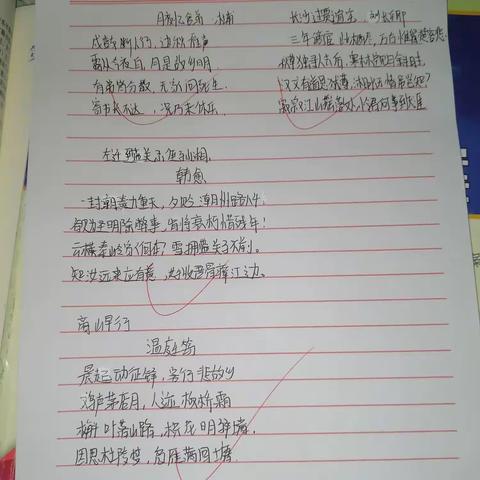 月夜忆舍弟 杜甫
戍鼓断人行，边秋一雁声
露从今夜白，月是故乡明
有弟皆分散，无家问死生
寄书长不达，况乃未休兵
长沙过贾谊宅 刘长卿
三年谪宦此栖迟，万古惟留楚客悲
秋草独寻人去后，寒林空见日斜时
汉文有道恩犹薄，湘水无情吊岂知？
寂寂江山摇落处，怜君何事到天涯
左迁至蓝关示侄孙湘
韩愈
一封朝奏九重天，夕贬潮州路八千
欲为圣明除弊事，肯将衰朽惜残年！
云横秦岭家何在？雪拥蓝关马不前。
知汝远来应有意，好收吾骨瘴江边。
商山早行
温庭筠
晨起动征铎，客行悲故乡
鸡声茅店月，人迹板桥霜
槲叶落山路，枳花明驿墙。
因思杜陵梦，凫雁满回塘